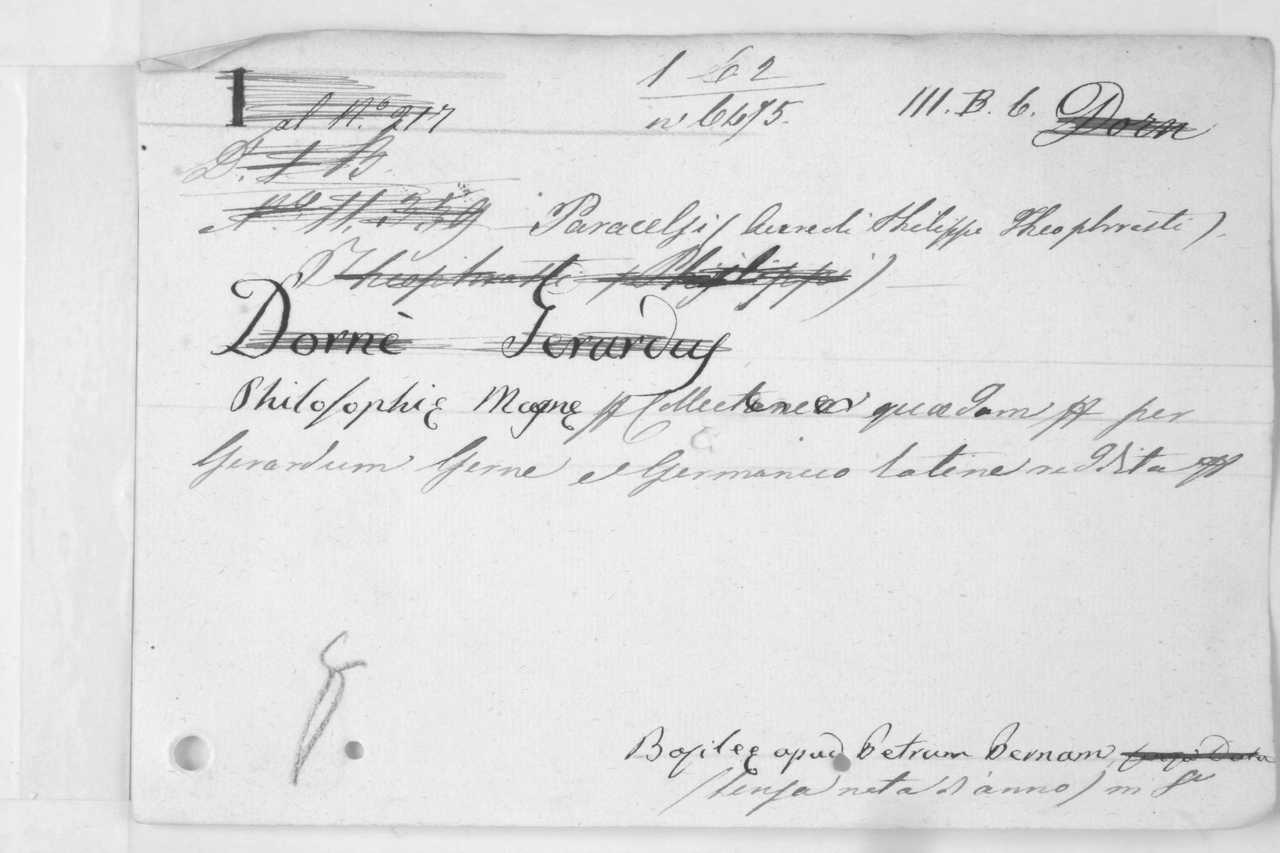 1 62
al N.º 217
nº 6475.
III. B. 6. Dorn
D. 1 B.
Nº 11,359 Paracelsi (Aureoli Philippi Theophrasti).
Theophrasti Philippi)
Dornè Gerardus
Philosophię Magnę Collectanea quædam per
Gerardum Gerne e Germanico latine reddita
8.
Basileę apud Petrum Pernam,
(senza nota d'anno) in 8º